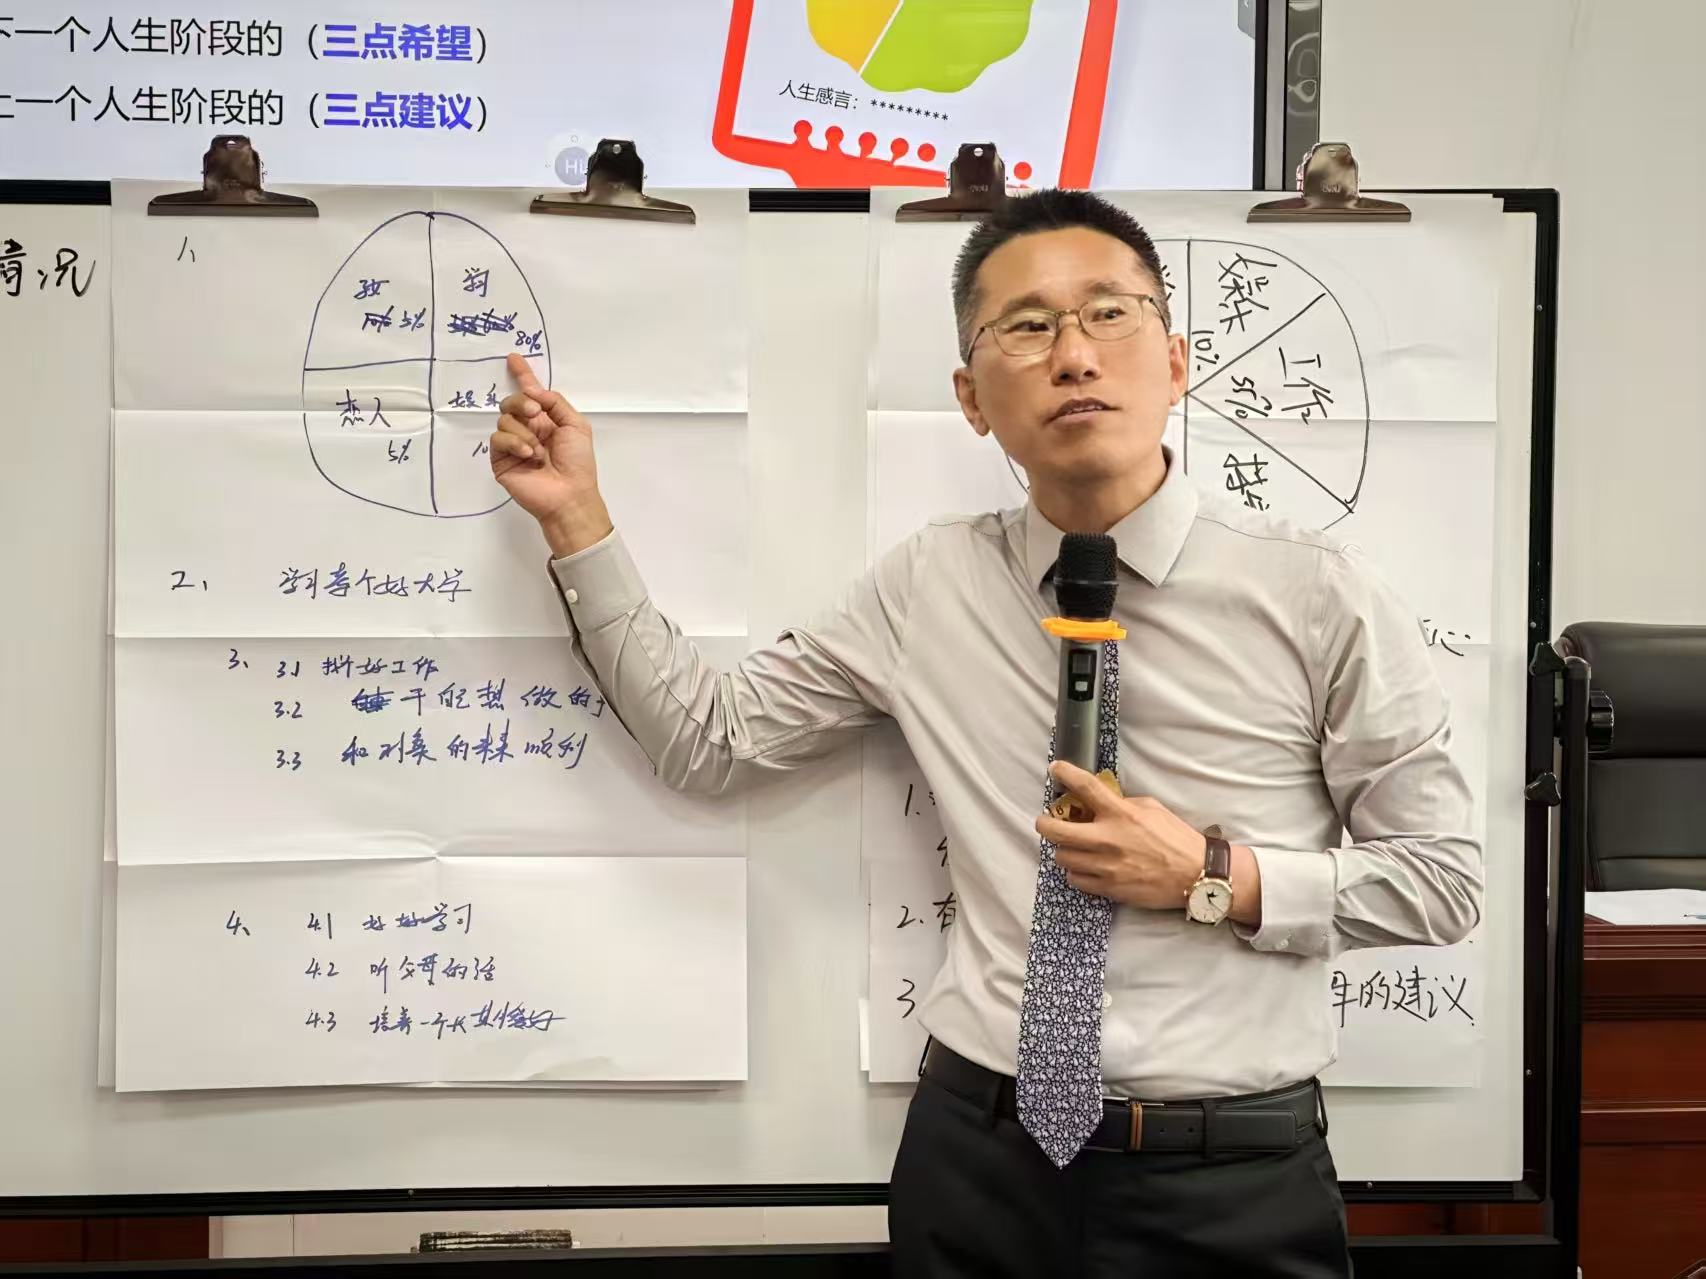 下一个人生阶段的（三点希望）
上一个人生阶段的（三点建议）
人生感言：*********
情况
1、
5%
80%
恋人
5%
娱乐
10
2、 学习考个好大学
3、 3.1 找好工作
3.2 干自己想做的
3.3 和对象的未来顺利
4、 4.1 好好学习
4.2 听父母的话
4.3 培养一个长
娱乐
10%
工作
55%
心
1.
2. 有
3
的建议